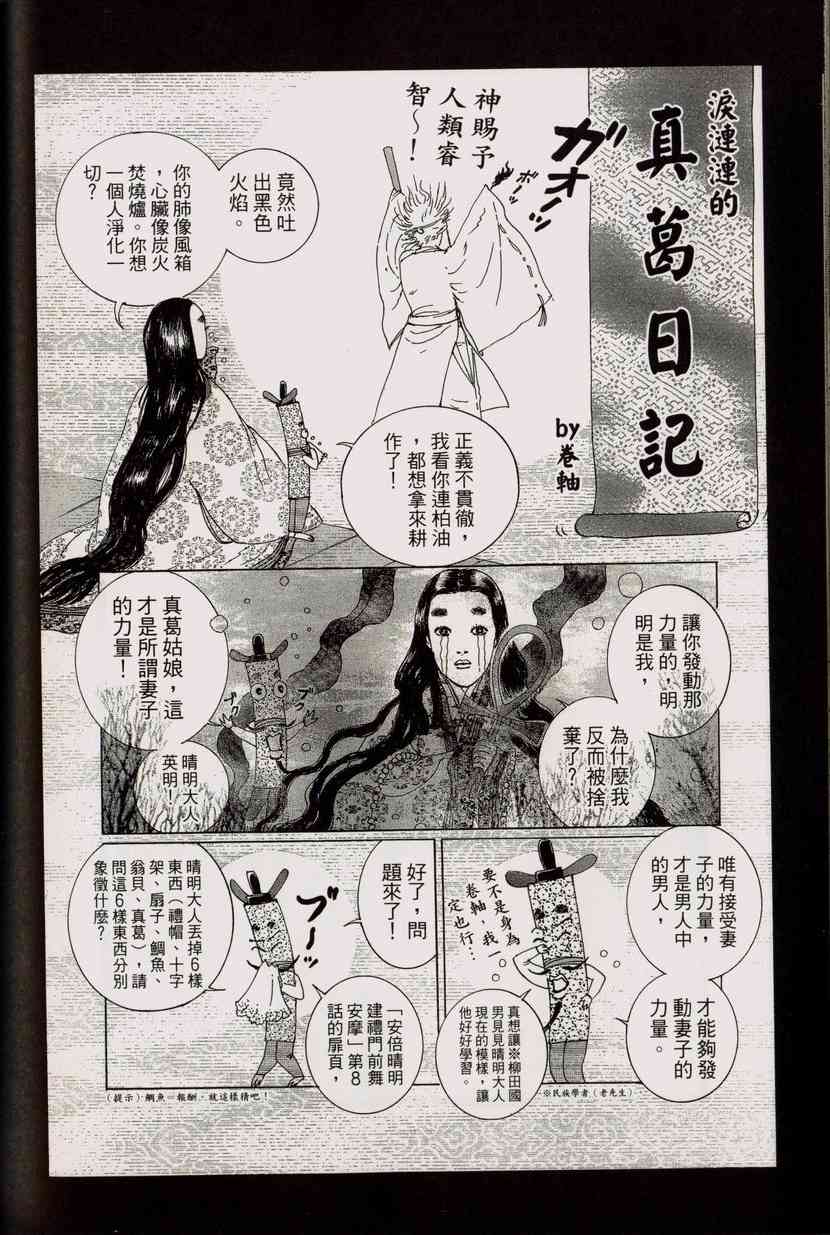 淚漣漣的
真葛日記
by卷軸
ガオーッ
ボーッ
神賜予
人類睿
智～！
竟然吐
出黑色
火焰。
你的肺像風箱
，心臟像炭火
焚燒爐。你想
一個人淨化一
切？
正義不貫徹，
我看你連柏油
，都想拿來耕
作了！
讓你發動那
力量的，明
明是我，
為什麼我
反而被捨
棄了？
ブクッ
ブクッ
真葛姑娘，這
才是所謂妻子
的力量！
晴明大人，
英明！
唯有接受妻
子的力量，
才是男人中
的男人，
才能夠發
動妻子的
力量。
要不是身為
卷軸，我一
定也行…
真想讓※柳田國
男見見晴明大人
現在的模樣，讓
他好好學習。
※民族學者（老先生）
好了，問
題來了！
「安倍晴明
建禮門前舞
安摩」第8
話的扉頁，
ブーッ
晴明大人丟掉6樣
東西（禮帽、十字
架、扇子、鯛魚、
翁貝、真葛），請
問這6樣東西分別
象徵什麼？
（提示）鯛魚＝報酬，就這樣猜吧！